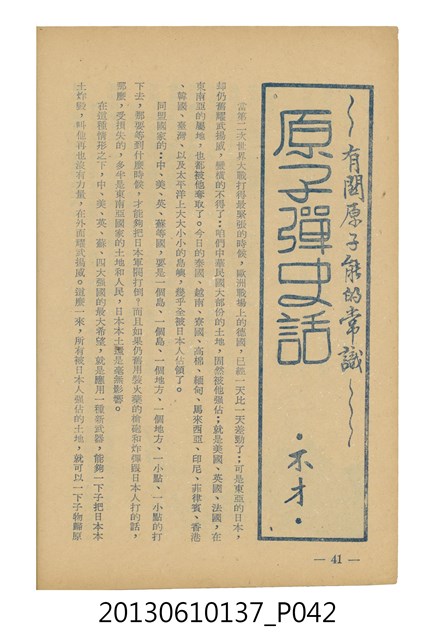 ～～有關原子能的常識～～
原子彈史話
・不才・
當第二次世界大戰打得最緊張的時候，歐洲戰場上的德國，已經一天比一天差勁了；可是東亞的日本，
却仍舊耀武揚威，蠻橫的不得了：咱們中華民國大部份的土地，固然被他強佔；就是美國、英國、法國，在
東南亞的屬地，也都被他奪取了。今日的泰國、越南、寮國、高棉、緬甸、馬來西亞、印尼、菲律賓、香港
、韓國、臺灣、以及太平洋上大大小小的島嶼，幾乎全被日本人佔領了。
同盟國家的：中、美、英、蘇等國，要是一個島、一個島，一個地方、一個地方，一小點、一小點的打
下去，都要等到什麼時候，才能夠把日本軍閥打倒？而且如果仍舊用裝火藥的槍砲和炸彈跟日本人打的話，
那麼，受損失的，多半是東南亞國家的土地和人民，日本本土還是毫無影響。
在這種情形之下，中、美、英、蘇、四大強國的最大希望，就是應用一種新武器，能夠一下子把日本本
土炸毀，叫他再也沒有力量，在外面耀武揚威。這麼一來，所有被日本人強佔的土地，就可以一下子物歸原
— 41 —
20130610137_P042